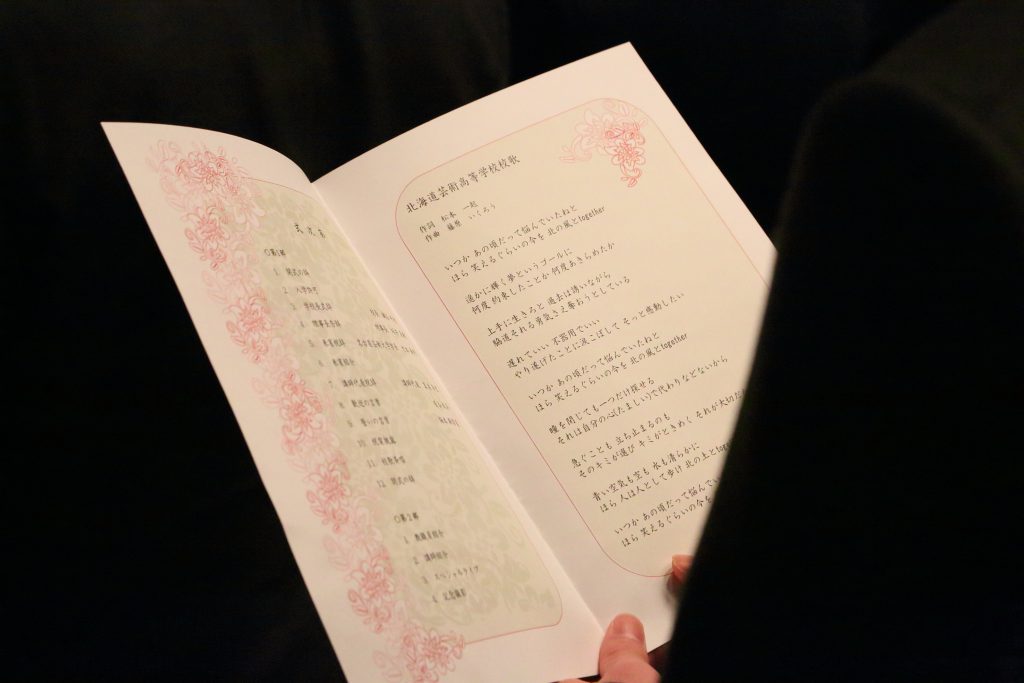 式次第
〇第1部
1. 開式の辞
2. 入学許可
3. 学校長式辞
4. 理事長告辞
5. 来賓祝辞
6. 来賓紹介
7. 講師代表祝辞
8. 歓迎の言葉
9. 誓いの言葉
10. 祝電披露
11. 校歌斉唱
12. 閉式の辞
〇第2部
1. 教職員紹介
2. 講師紹介
3. スペシャルライブ
4. 記念撮影
北海道芸術高等学校校歌
作詞 松本 一起
作曲 藤原 いくろう
いつか あの頃だって悩んでいたねと
ほら 笑えるぐらいの今を 北の風とtogether
遥かに輝く夢というゴールに
何度 約束したことか 何度あきらめたか
上手に生きろと 過去は誘いながら
脇道それる勇気さえ奪おうとしている
遅れていい 不器用でいい
やり遂げたことに涙こぼして そっと感動したい
いつか あの頃だって悩んでいたねと
ほら 笑えるぐらいの今を 北の風とtogether
瞳を閉じても一つだけ探せる
それは自分の心(たましい)で代わりなどないから
急ぐことも 立ち止まるのも
そのキミが選び キミがときめく それが大切だ
青い空気も空も 水も清らかに
ほら 人は人として歩け 北の土とtoge
いつか あの頃だって悩んでい
ほら 笑えるぐらいの今を